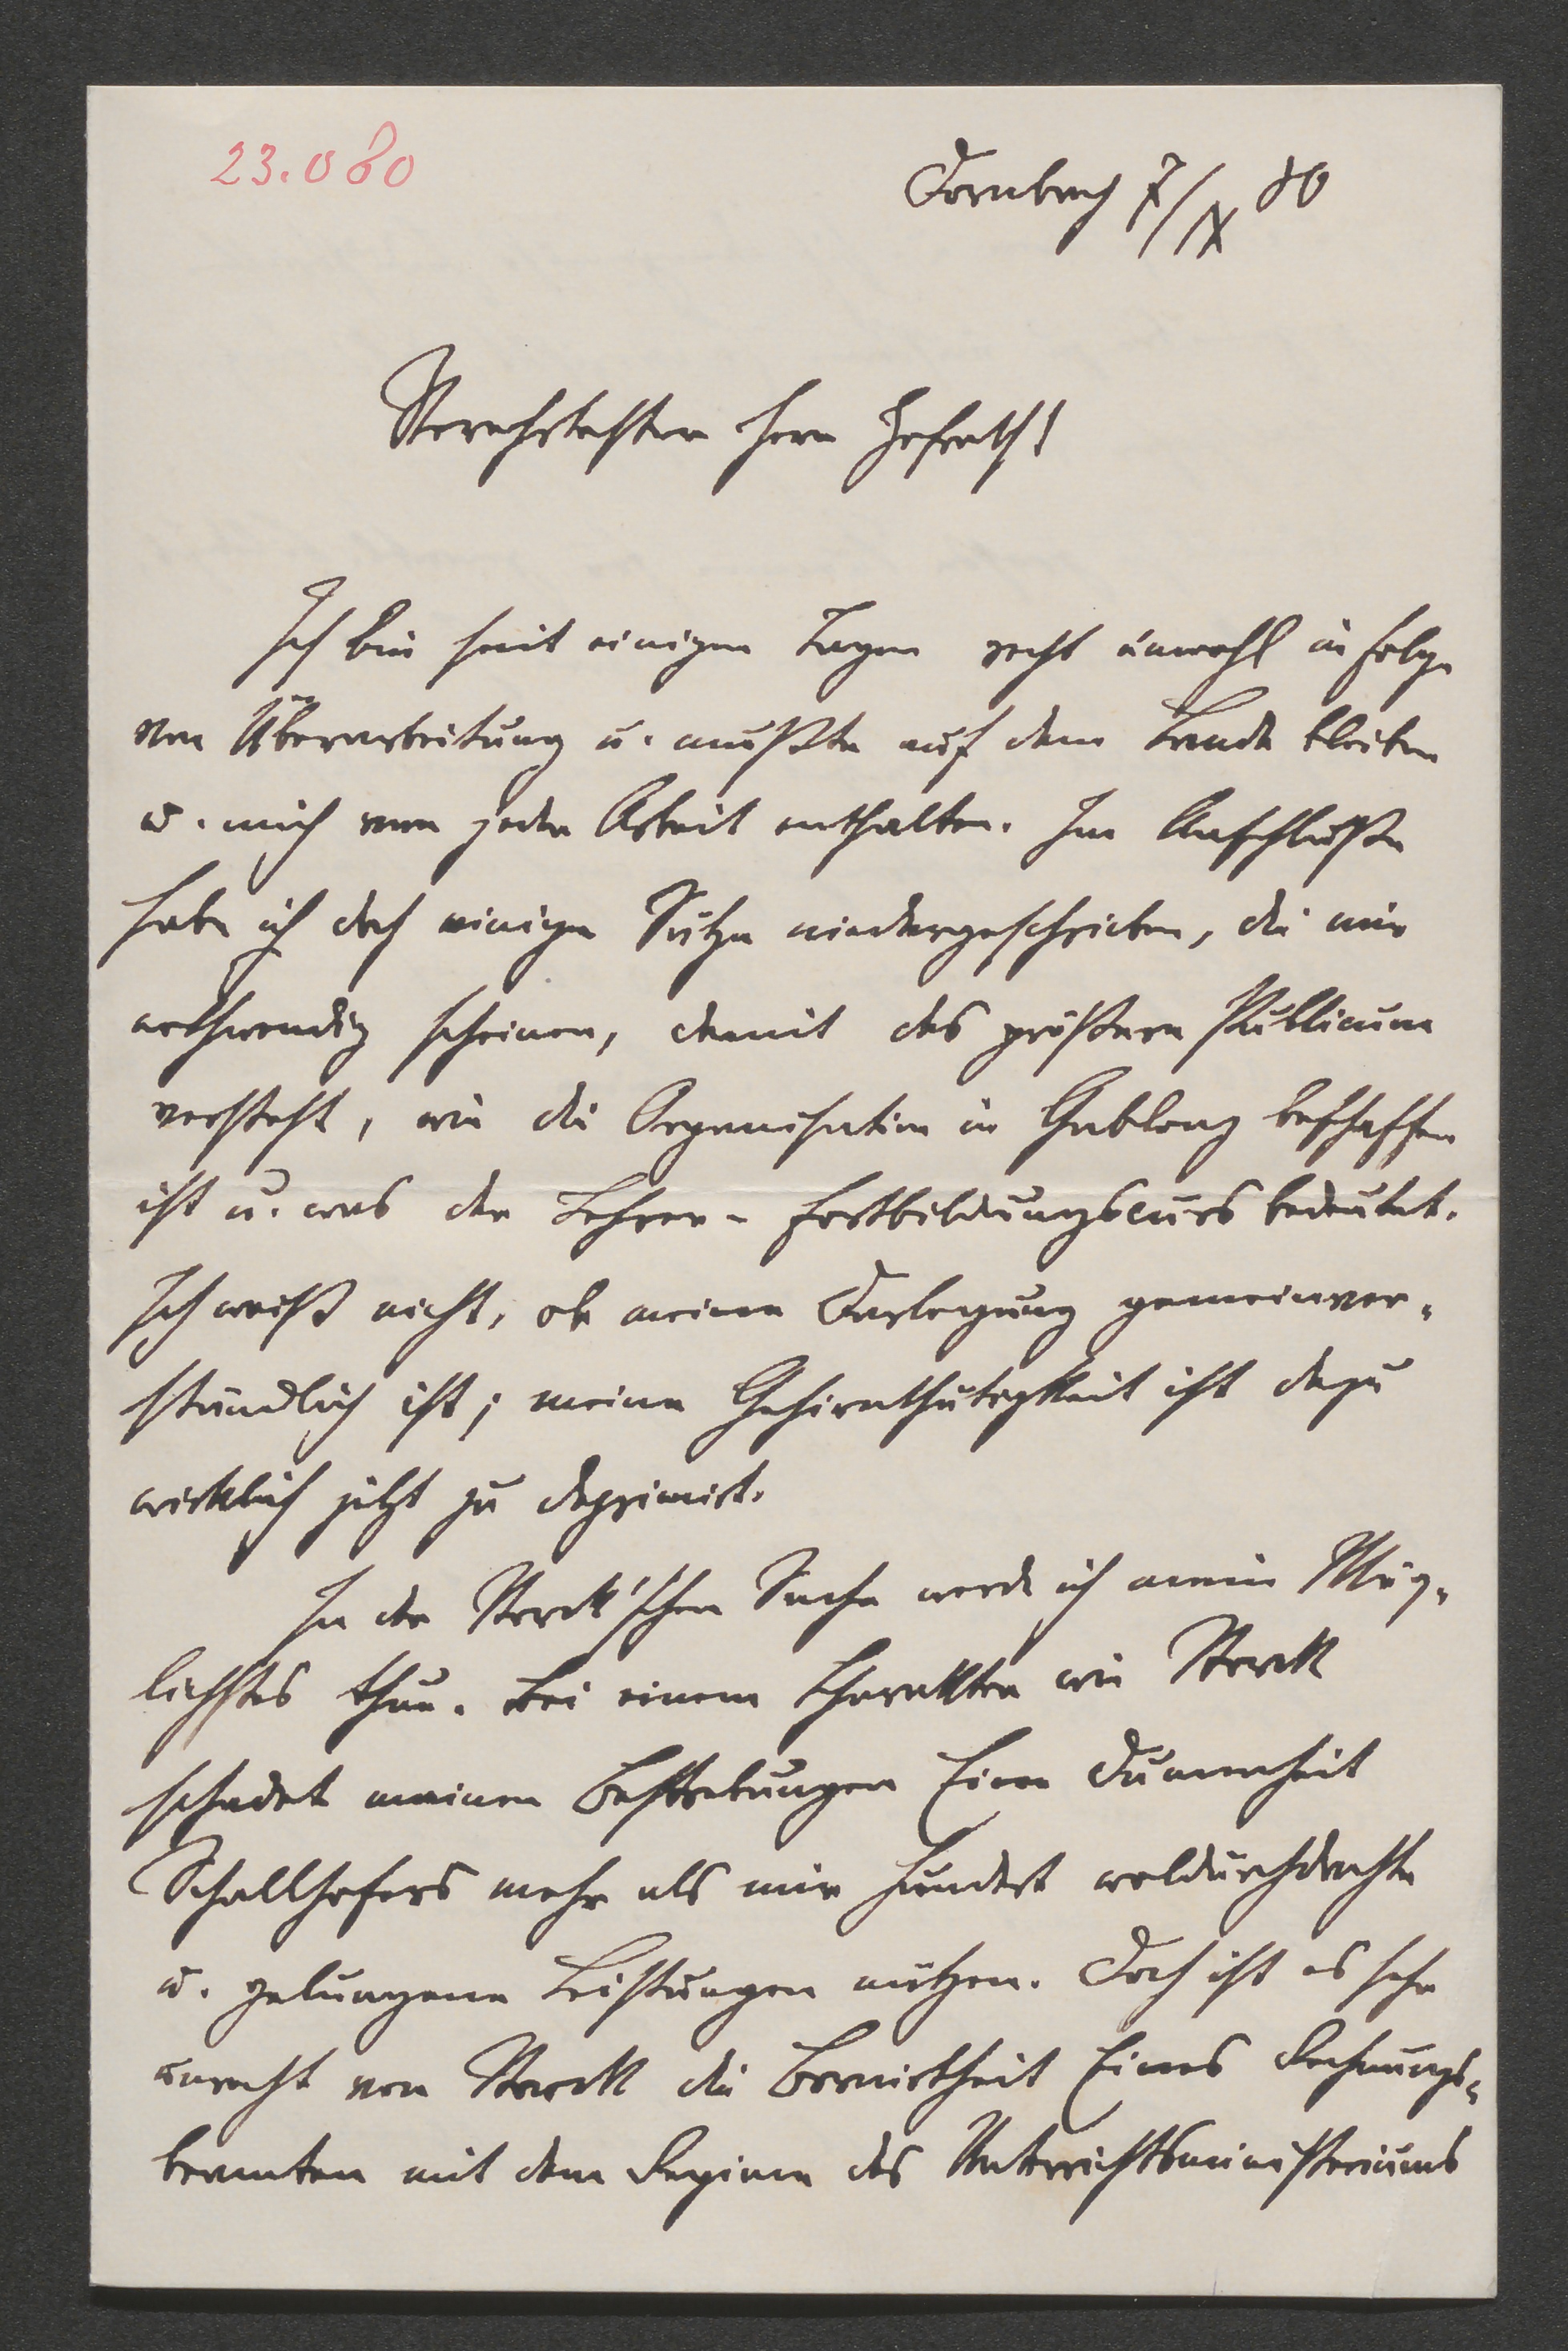 23.080
Dornbach 7/IX 80
Verehrtester Herr Hofrath!
Ich bin seit einigen Tagen recht unwohl in folge
von Überarbeitung u. mußte auf dem Lande bleiben
u. mich von jeder Arbeit enthalten. Im Anschluße
habe ich doch einige Sätze niedergeschrieben, die mir
nothwendig scheinen, damit das größere Publicum
versteht, wie die Organisation in Gablonz beschaffen
ist u. was der Lehrer-Fortbildungscurs bedeutet.
Ich weiß nicht, ob meine Darlegung gemeinver-
ständlich ist; meine Gehirnthätigkeit ist dazu
wirklich jetzt zu deprimirt.
In der Storck'schen Sache werde ich mein Mög-
lichstes thun. Bei einem Charakter wie Storck
schadet meinen Bestrebungen Eine Dummheit
Schallhofers mehr als mir hundert woldurchdachte
u. gelungene Leistungen nützen. Doch ist es sehr
unrecht von Storck die Bornirtheit Eines Rechnungs-
beamten mit dem Regime des Unterrichtsministeriums